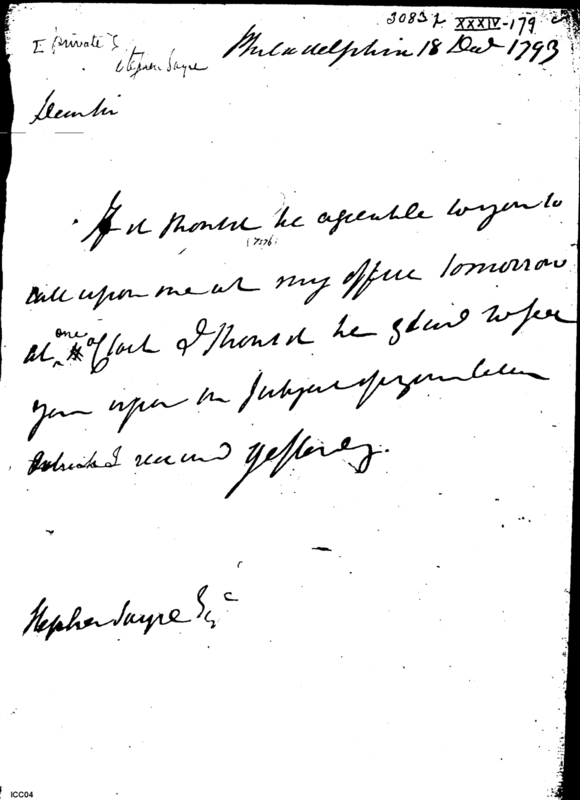 3083½ XXXIV-179 c
[private]
Stephen Sayre
Philadelphia 18 Decr 1793
Dear Sir
If it should be agreable to you to
call upon me at my office tomorrow
at one oClock I should be glad to see
you upon the Subject of your letter
which I received yesterday.
Stephen Sayre Esqr
ICC04